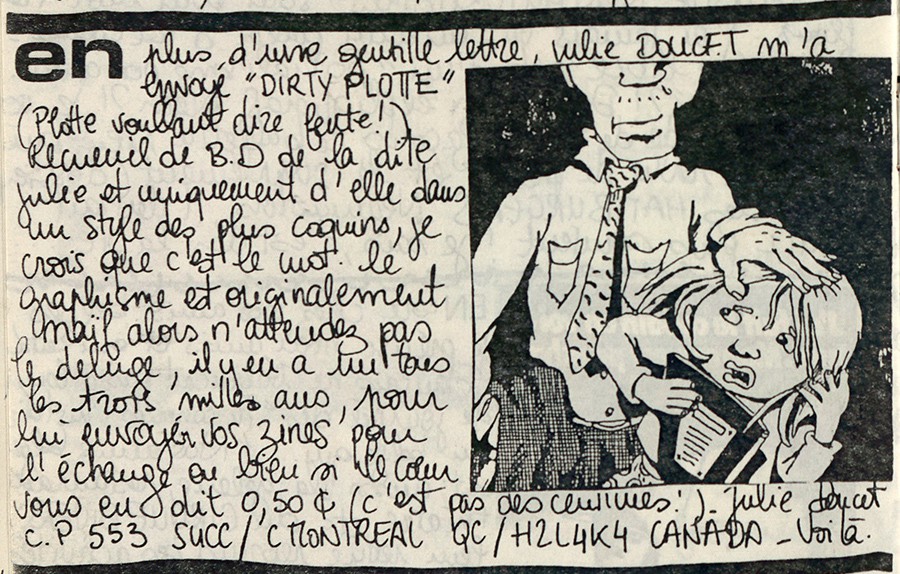 en plus d'une gentille lettre, Julie DOUCET m'a
envoyé "DIRTY PLOTTE"
(Plotte voullant dire fente!)
Recueuil de B.D de la dite
julie et uniquement d'elle dans
un style des plus coquins, je
crois que c'est le mot. le
graphisme est originalement
naif alors n'attendez pas
le deluge, il y en a un tous
les trois milles ans, pour
lui envoyér vos zines pour
l'échange ou bien si le coeur
vous en dit 0,50 ¢ (c'est pas des centimes!)_ Julie doucet
C.P 553 SUCC/C MONTREAL QC/H2L4K4 CANADA _ Voilà.